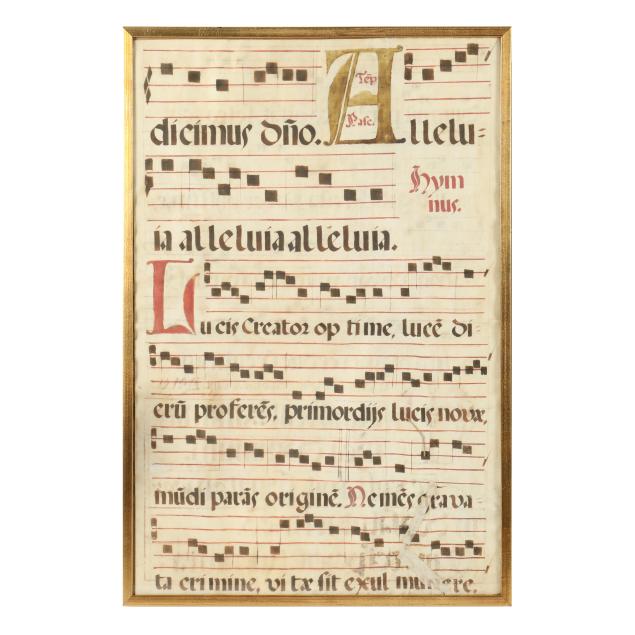 dicimus dño. Allelu-
Tẽp
Pasc.
Hym
nus.
ia alleluia alleluia.
Lucis Creator optime, lucẽ di-
erũ proferẽs, primordijs lucis novæ,
mũdi parãs originẽ. Ne mẽs grava-
ta crimine, vitæ sit exul munere,